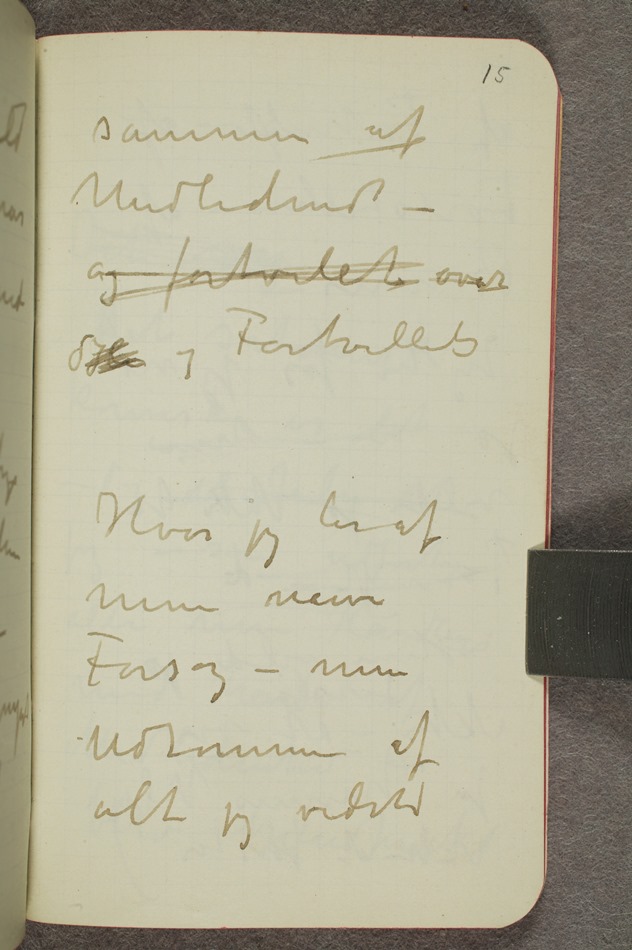 15
sammen af
Medlidend –
og fortvilet over
og Fortvillets
Hvor jeg ler af
mine naive
Forsøg – min
Udtømmen af
alt jeg vidste